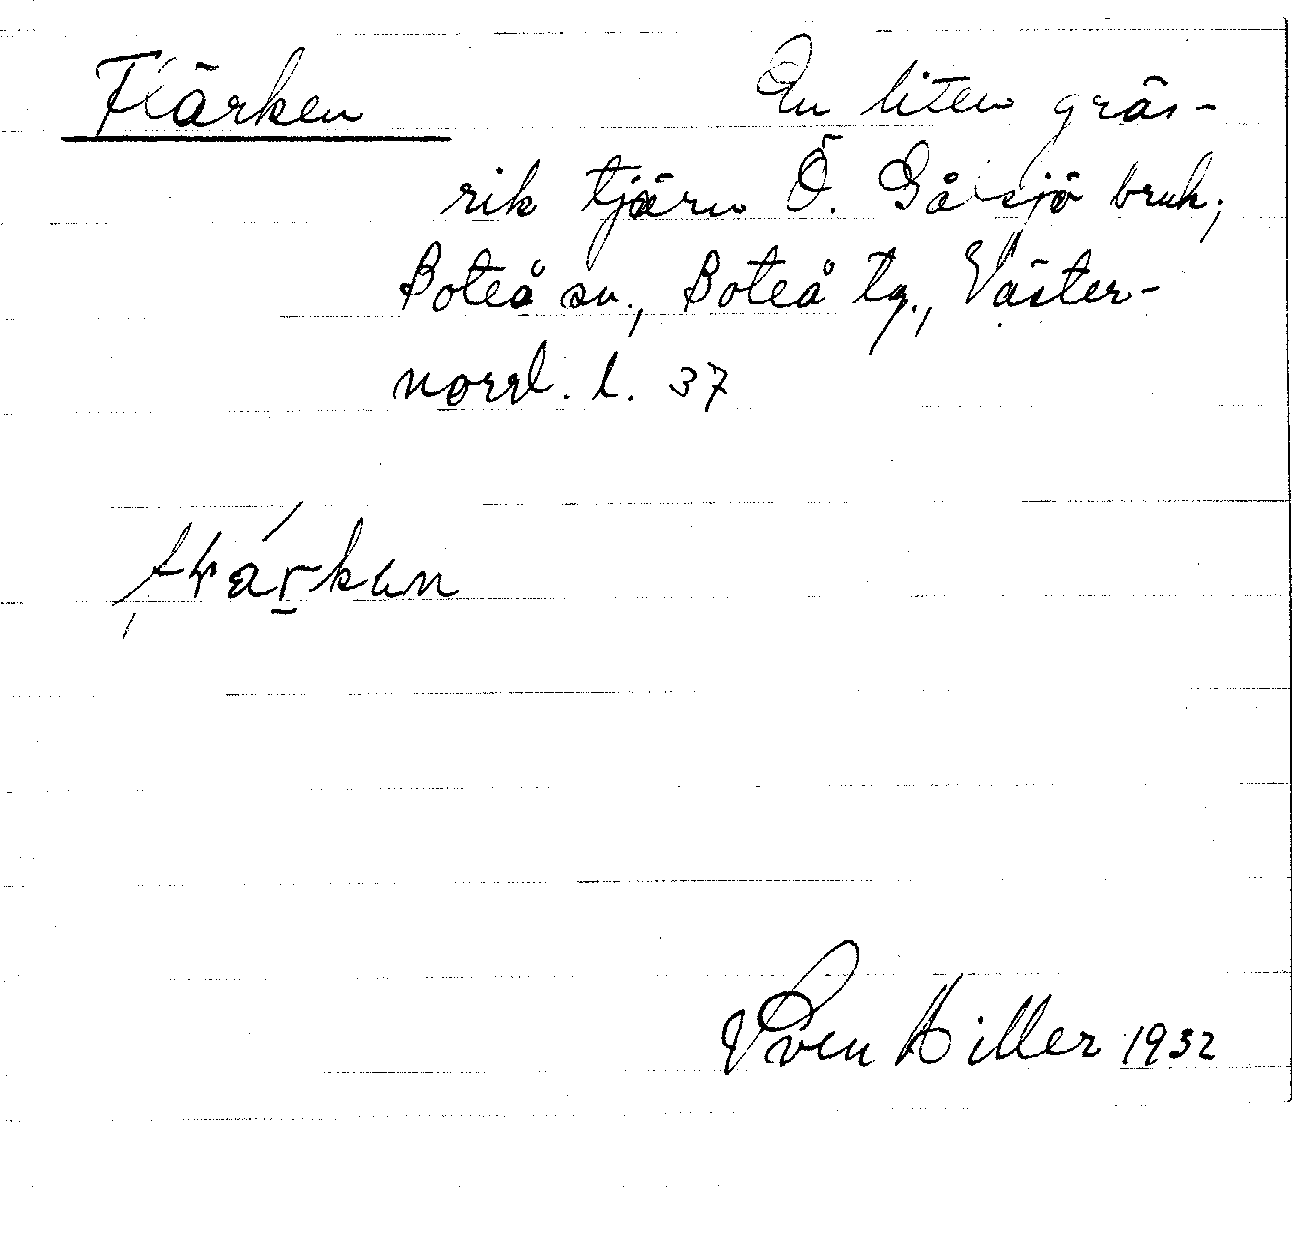 Flärken En liten gräs-
rik tjärn Ö. Gålsjö bruk,
Boteå sn., Boteå tg., Väster-
norrl. l. 37
Sven Hiller 1932